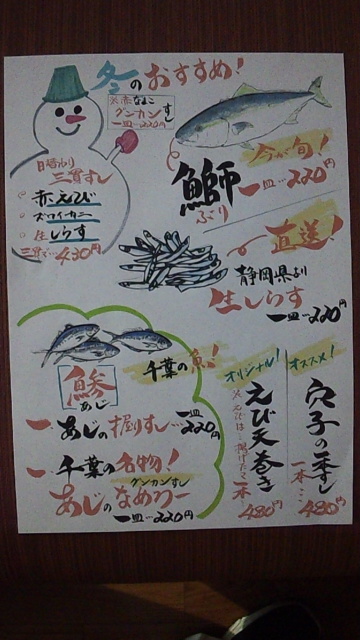 冬のおすすめ!
※赤なまこ
グンカンずし
一皿…220円
今が旬!
鰤
ぶり
一皿…220円
日替わり
三貫すし
赤えび
ズワイカニ
生しらす
三貫で…430円
直送!
静岡県より
生しらす
一皿…220円
千葉の魚!
鯵
あじ
一、あじの握りすし…一皿220円
一、千葉の名物!
グンカンすし
あじのなめろー
一皿…220円
オリジナル!
えび天巻き
※えびは揚げたて
一本
480円
オススメ!
穴子の一本ずし
一本…
480円